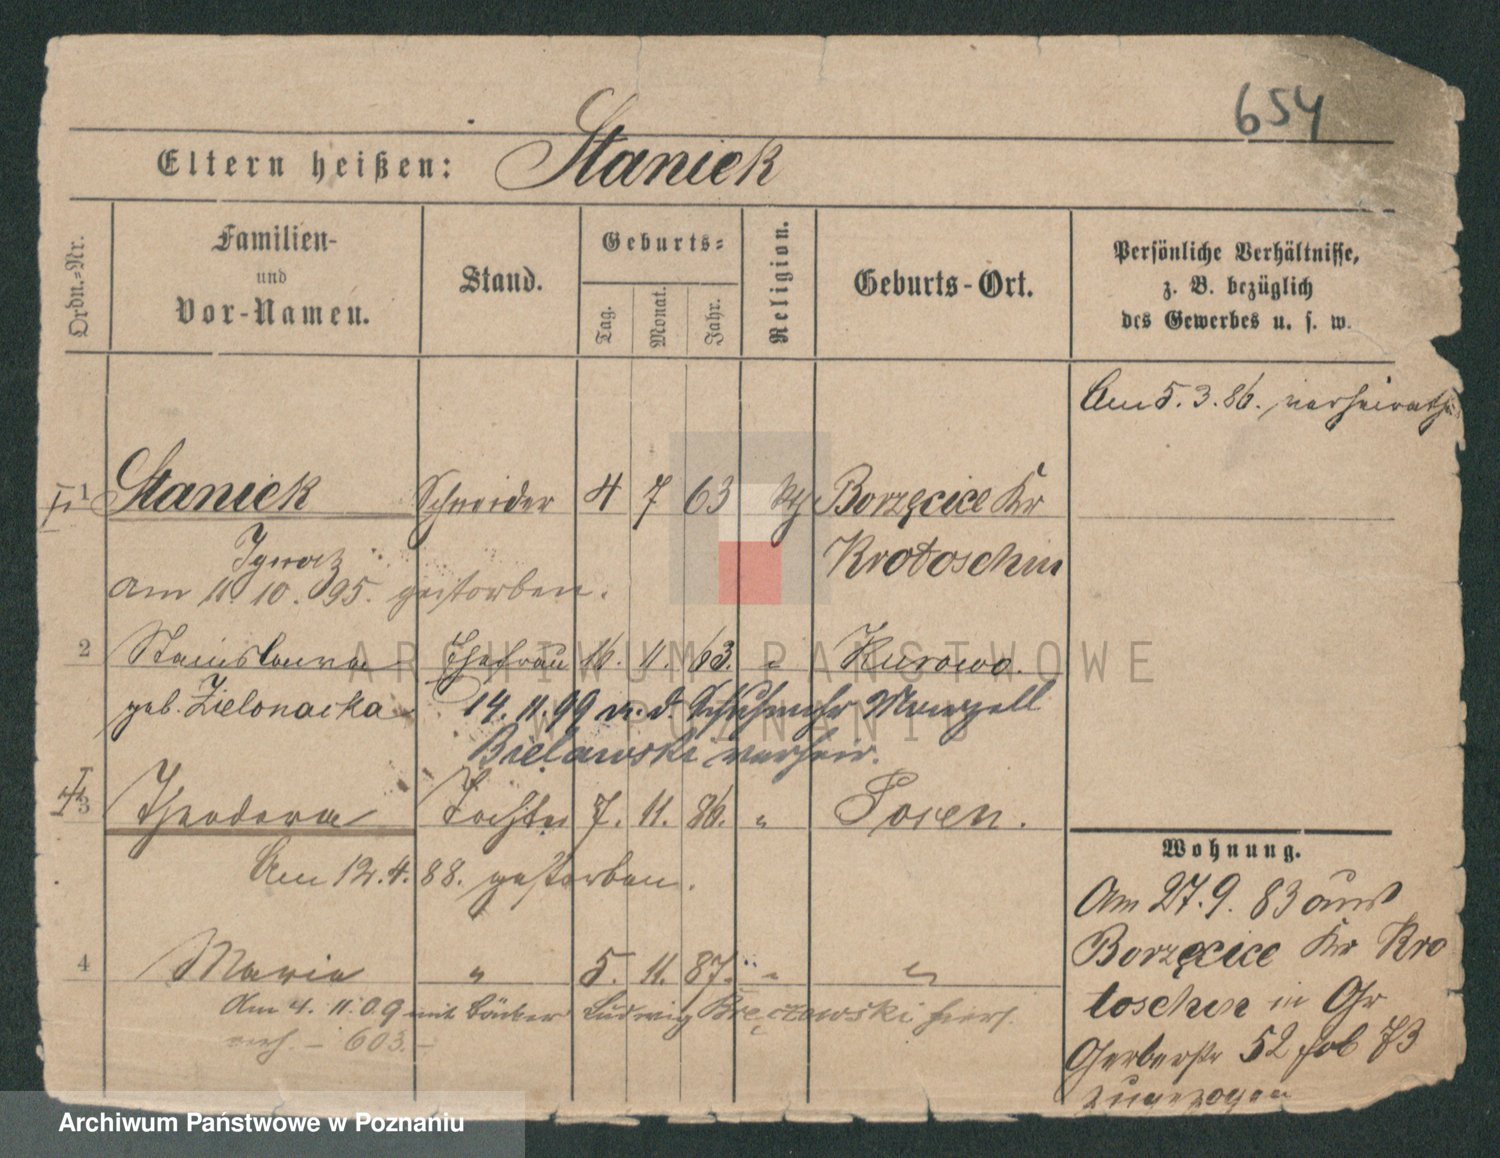 654
Eltern heißen: Staniek
Ordn.-Nr.
Familien-
und
Vor-Namen.
Stand.
Geburts-
Tag.
Monat.
Jahr.
Religion.
Geburts-Ort.
Persönliche Verhältnisse,
z. B. bezüglich
des Gewerbes u. s. w.
Am 5.3.86. verheirathet
1 Staniek Schneider 4 7 63 Borzęcice Kr
Ignatz Krotoschin
am 11. 10. 95. gestorben.
2 Stanislawa Ehefrau 16. 11. 63. " Kurowo.
geb. Zielonacka 14. 11. 99 m. d. Schuhmchr
Bielawski verheir.
3 Theodora Tochter 7. 11. 86. " Posen.
Am 12. 4. 88. gestorben.
Wohnung.
Am 27. 9. 83 aus
Borzęcice Kr Kro
toschin in Gr
Gerberstr 52 bei
zugezogen
4 Maria " 5. 11. 87. " "
Am 4. 11. 09 mit Bäcker Ludwig Bręczewski hier
603.
ARCHIWUM PAŃSTWOWE
W POZNANIU
Archiwum Państwowe w Poznaniu